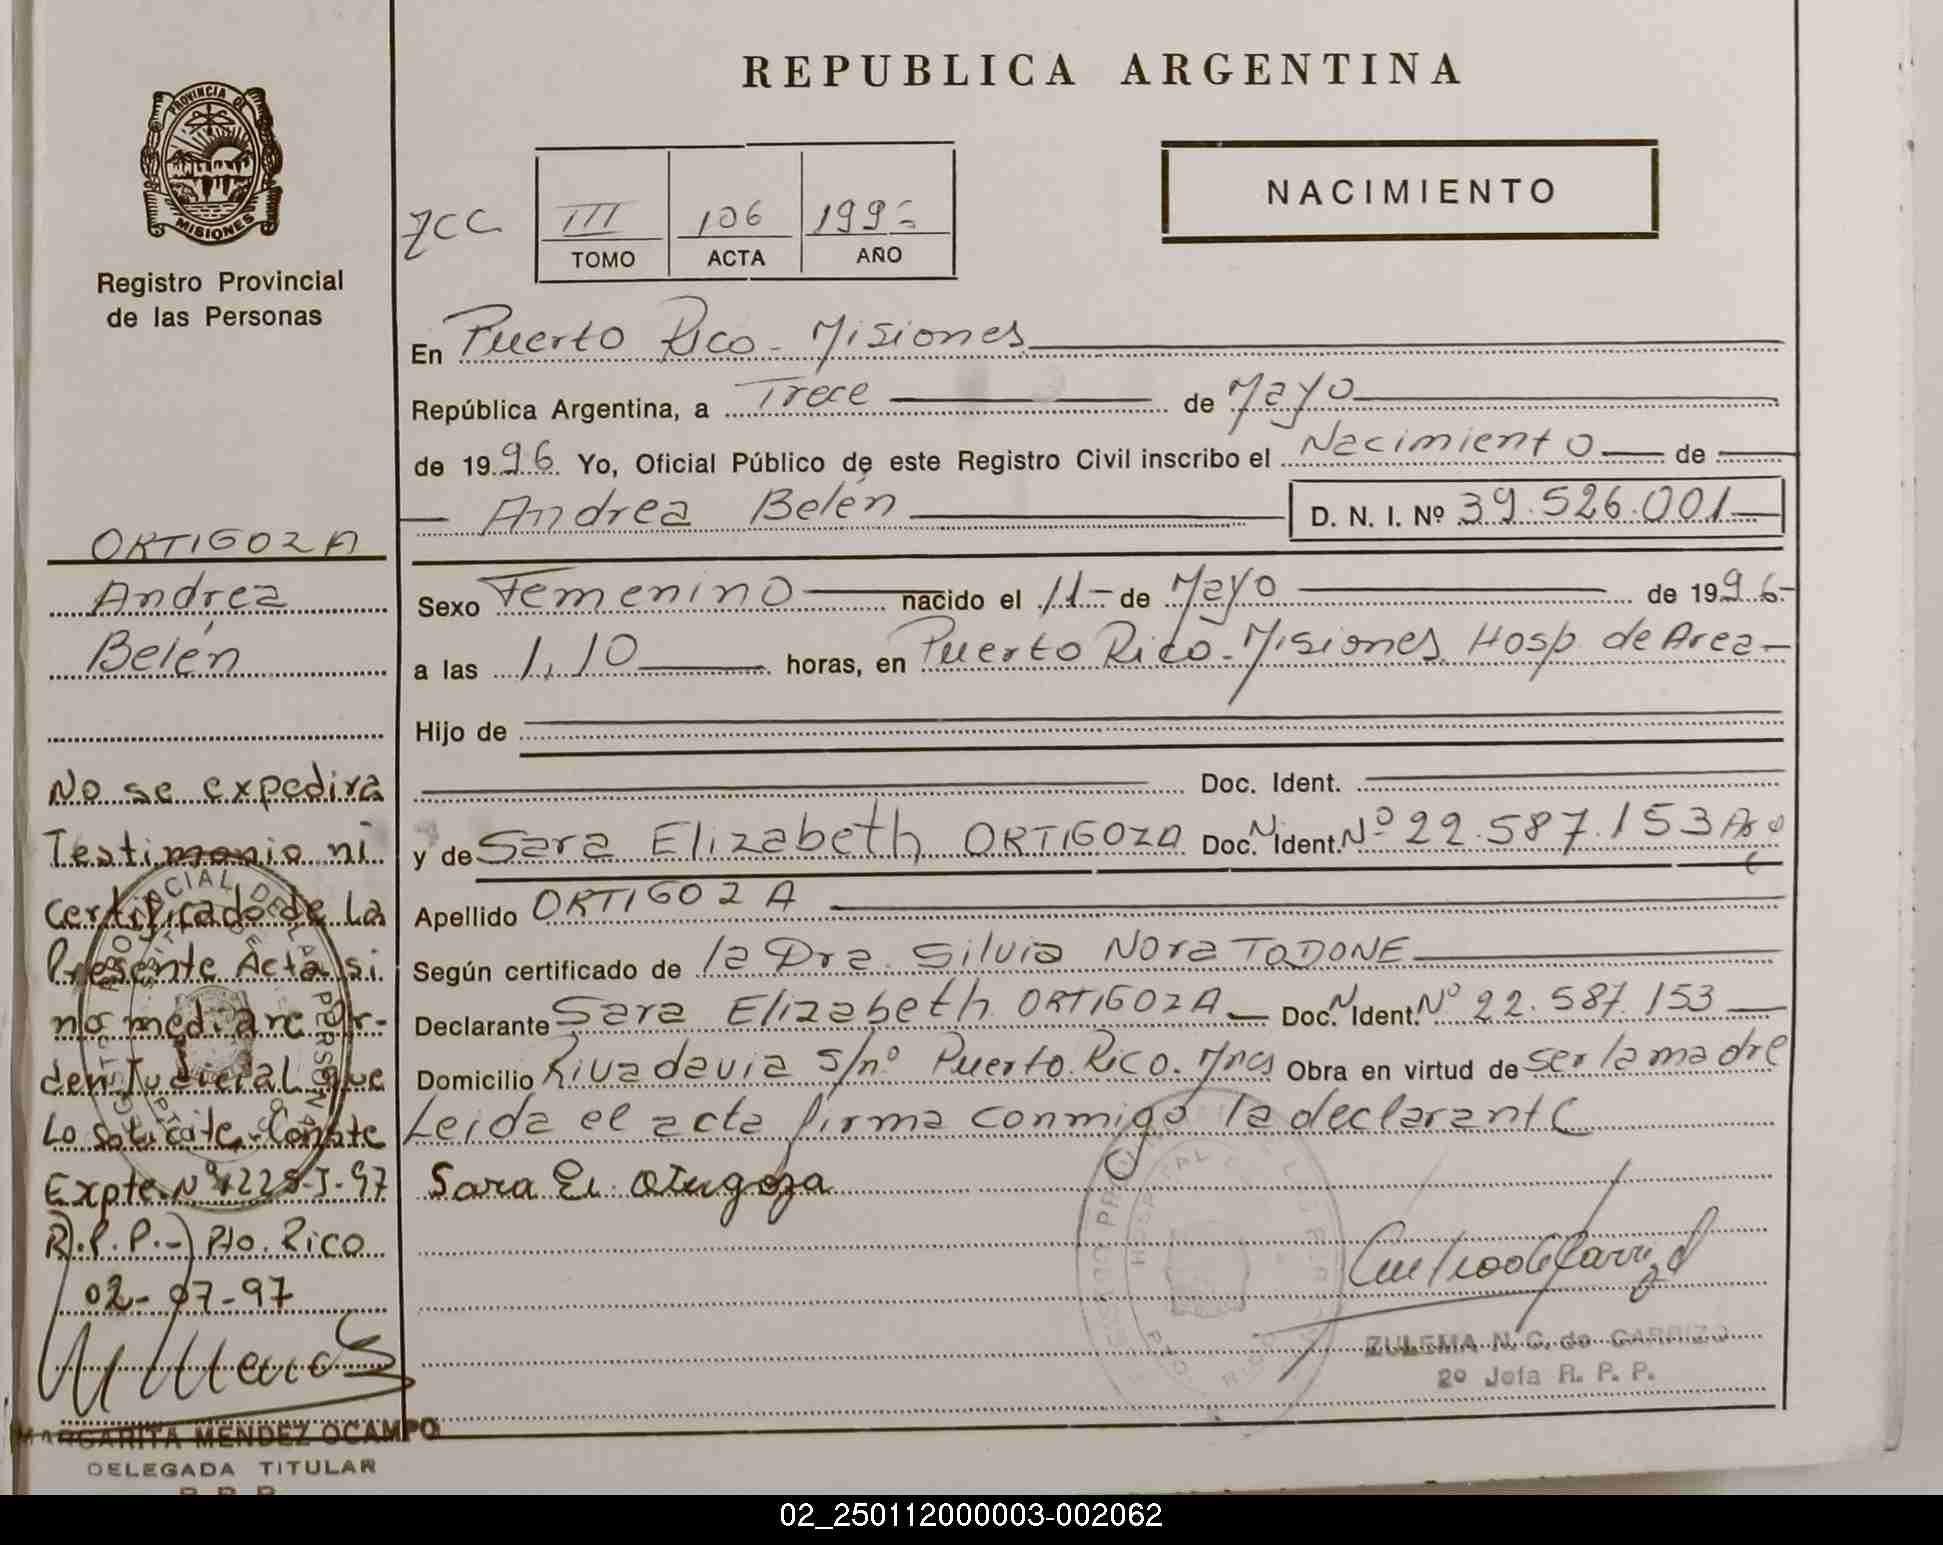 REPUBLICA ARGENTINA
PROVINCIA DE
MISIONES
Registro Provincial
de las Personas
NACIMIENTO
III 106 199
TOMO ACTA AÑO
En Puerto Rico - Misiones
República Argentina, a Trece de Mayo
de 1996 Yo, Oficial Público de este Registro Civil inscribo el Nacimiento de
Andrea Belén D. N. I. Nº 39.526.001
Sexo Femenino nacido el 11 - de Mayo de 1996-
a las 1,10 horas, en Puerto Rico - Misiones Hosp. de Area -
Hijo de
Doc. Ident.
y de Sara Elizabeth ORTIGOZA Doc. N Ident. Nº 22.587.153
Apellido ORTIGOZA
Según certificado de la Dra. Silvia Nora TODONE
Declarante Sara Elizabeth ORTIGOZA Doc. N Ident. Nº 22.587.153
Domicilio Rivadavia s/nº Puerto Rico. Mnes Obra en virtud de ser la madre
Leida el acta firma conmigo la declarante
Sara
ZULEMA N. C. de CARRIZO
2º Jefa R. P. P.
ORTIGOZA
Andrea
Belén
No se expedira
Testimonio ni
certificado de La
Presente Acta si
no mediare Or-
den Judicial que
Lo solicite. Conste
Expte Nº
R.P.P.-) Pto. Rico
02-07-97
MARGARITA MENDEZ OCAMPO
DELEGADA TITULAR
R. P. P.
02_250112000003-002062